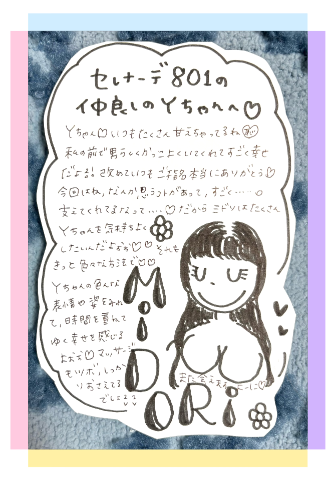 セレナーデ801の
仲良しのYちゃんへ♡
Yちゃん♡いつもたくさん甘えちゃってるね
私の前で男らしくかっこよくいてくれてすごく幸せ
だよる! 改めていつもご指名本当にありがとう♡
今回はね、なんか思うントがあって、すごく……
支えてくれてるなって……♡だからミドリはたくさん
Yちゃんを気持ちよく
したいんだよぉぉ♡♡それも
きっと色々な方法で♡♡
Yちゃんの色んな
表情や姿をみれ
て、時間を重ねて
ゆく幸せを感じる
よぉぉ♡マッサージ
もツボ、しっか
りおさえてる
でしょ
また会えますよーに♡
MiDORi